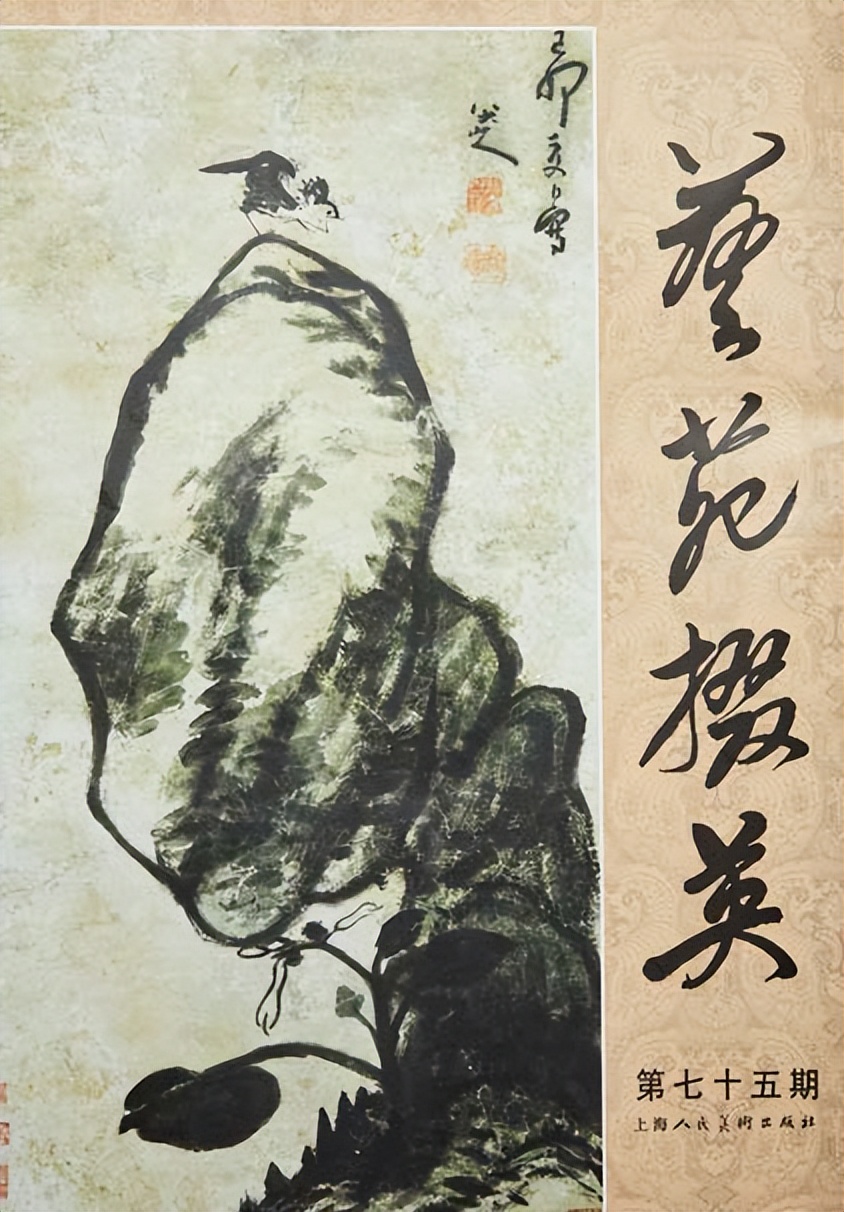 藝苑掇英
第七十五期
上海人民美術出版社
己卯夏日寫
八大山人